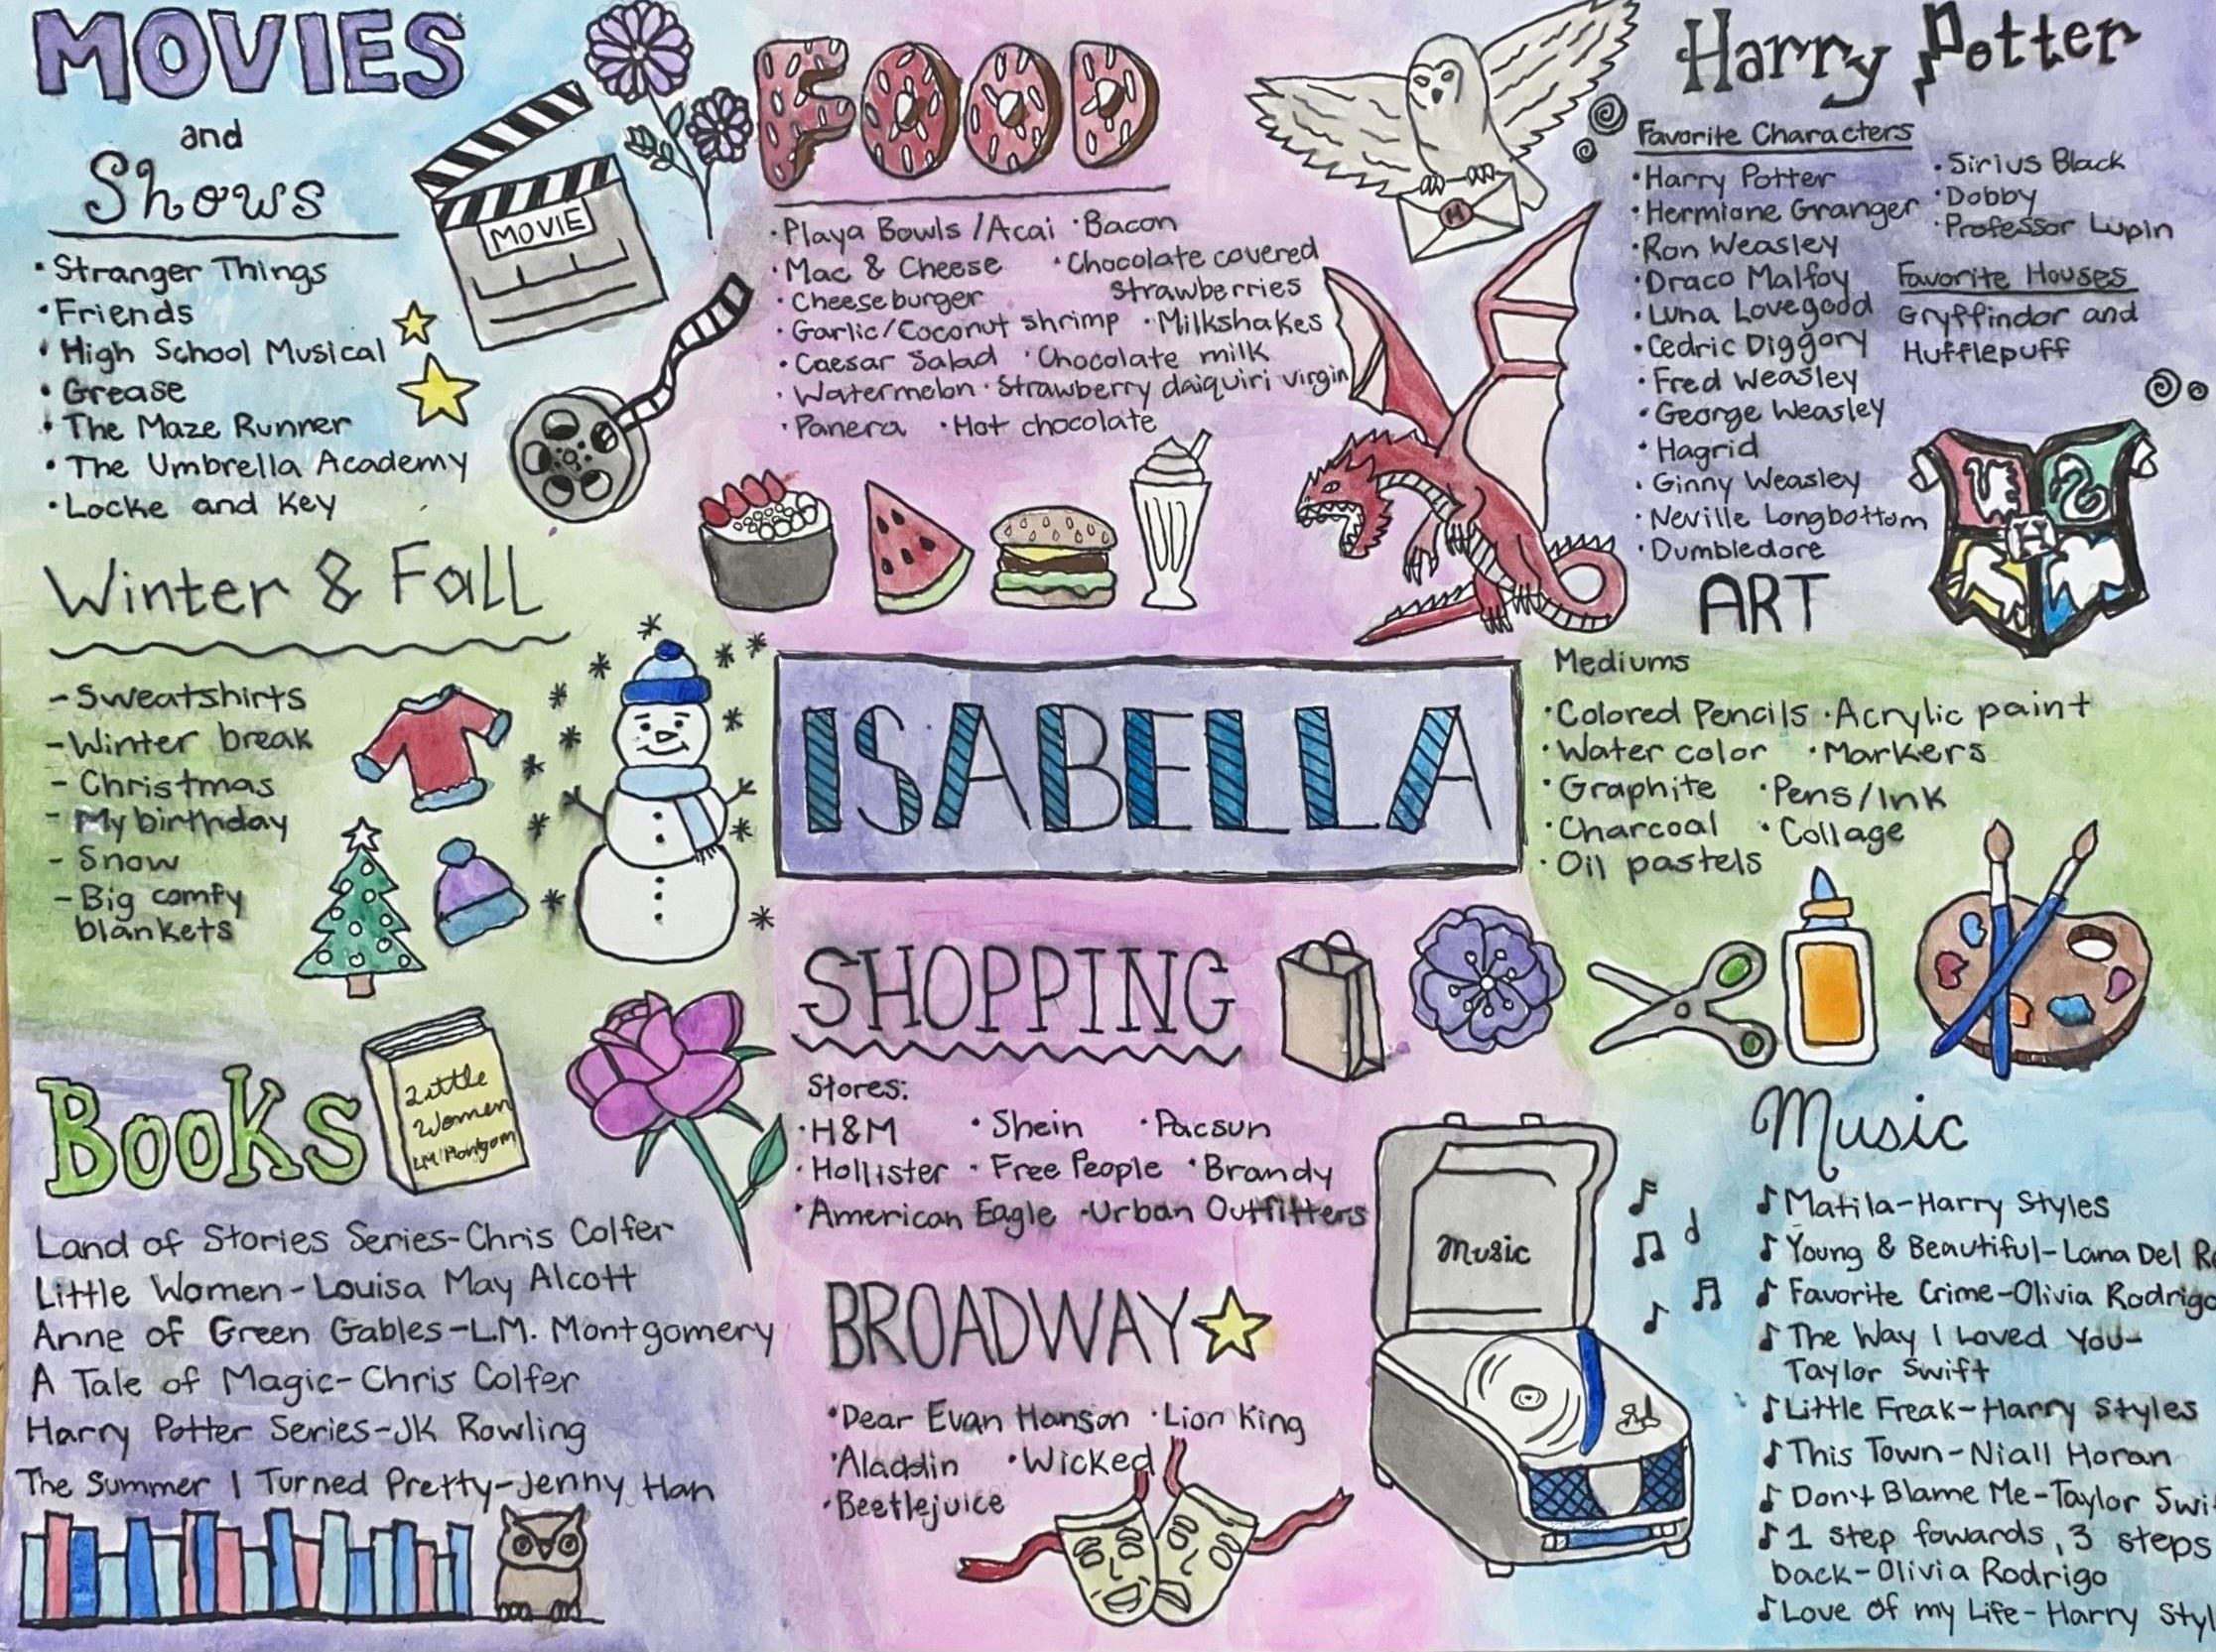 MOVIES
and
Shows
• Stranger Things
• Friends
• High School Musical
• Grease
• The Maze Runner
• The Umbrella Academy
• Locke and Key
MOVIE
FOOD
• Playa Bowls / Acai • Bacon
• Mac & Cheese • Chocolate covered
• Cheeseburger strawberries
• Garlic/Coconut shrimp • Milkshakes
• Caesar Salad • Chocolate milk
• Watermelon • Strawberry daiquiri virgin
• Panera • Hot chocolate
M
Harry Potter
Favorite Characters
• Harry Potter
• Hermione Granger
• Ron Weasley
• Draco Malfoy
• Luna Lovegood
• Cedric Diggory
• Fred Weasley
• George Weasley
• Hagrid
• Ginny Weasley
• Neville Longbottom
• Dumbledore
• Sirius Black
• Dobby
• Professor Lupin
Favorite Houses
Gryffindor and
Hufflepuff
H
Winter & Fall
- Sweatshirts
- Winter break
- Christmas
- My birthday
- Snow
- Big comfy
blankets
ISABELLA
ART
Mediums
• Colored Pencils • Acrylic paint
• Water color • Markers
• Graphite • Pens/Ink
• Charcoal • Collage
• Oil pastels
Books
Little
Women
LM Montgom
Land of Stories Series-Chris Colfer
Little Women-Louisa May Alcott
Anne of Green Gables-L.M. Montgomery
A Tale of Magic-Chris Colfer
Harry Potter Series-JK Rowling
The Summer I Turned Pretty-Jenny Han
SHOPPING
Stores:
• H&M • Shein • Pacsun
• Hollister • Free People • Brandy
• American Eagle • Urban Outfitters
BROADWAY
• Dear Evan Hanson • Lion King
• Aladdin • Wicked
• Beetlejuice
Music
Music
♪ Matila-Harry Styles
♪ Young & Beautiful-Lana Del Re
♪ Favorite Crime-Olivia Rodrigo
♪ The Way I Loved You-
Taylor Swift
♪ Little Freak-Harry Styles
♪ This Town-Niall Horan
♪ Don't Blame Me-Taylor Swi
♪ 1 step fowards, 3 steps
back-Olivia Rodrigo
♪ Love of my Life-Harry Styl